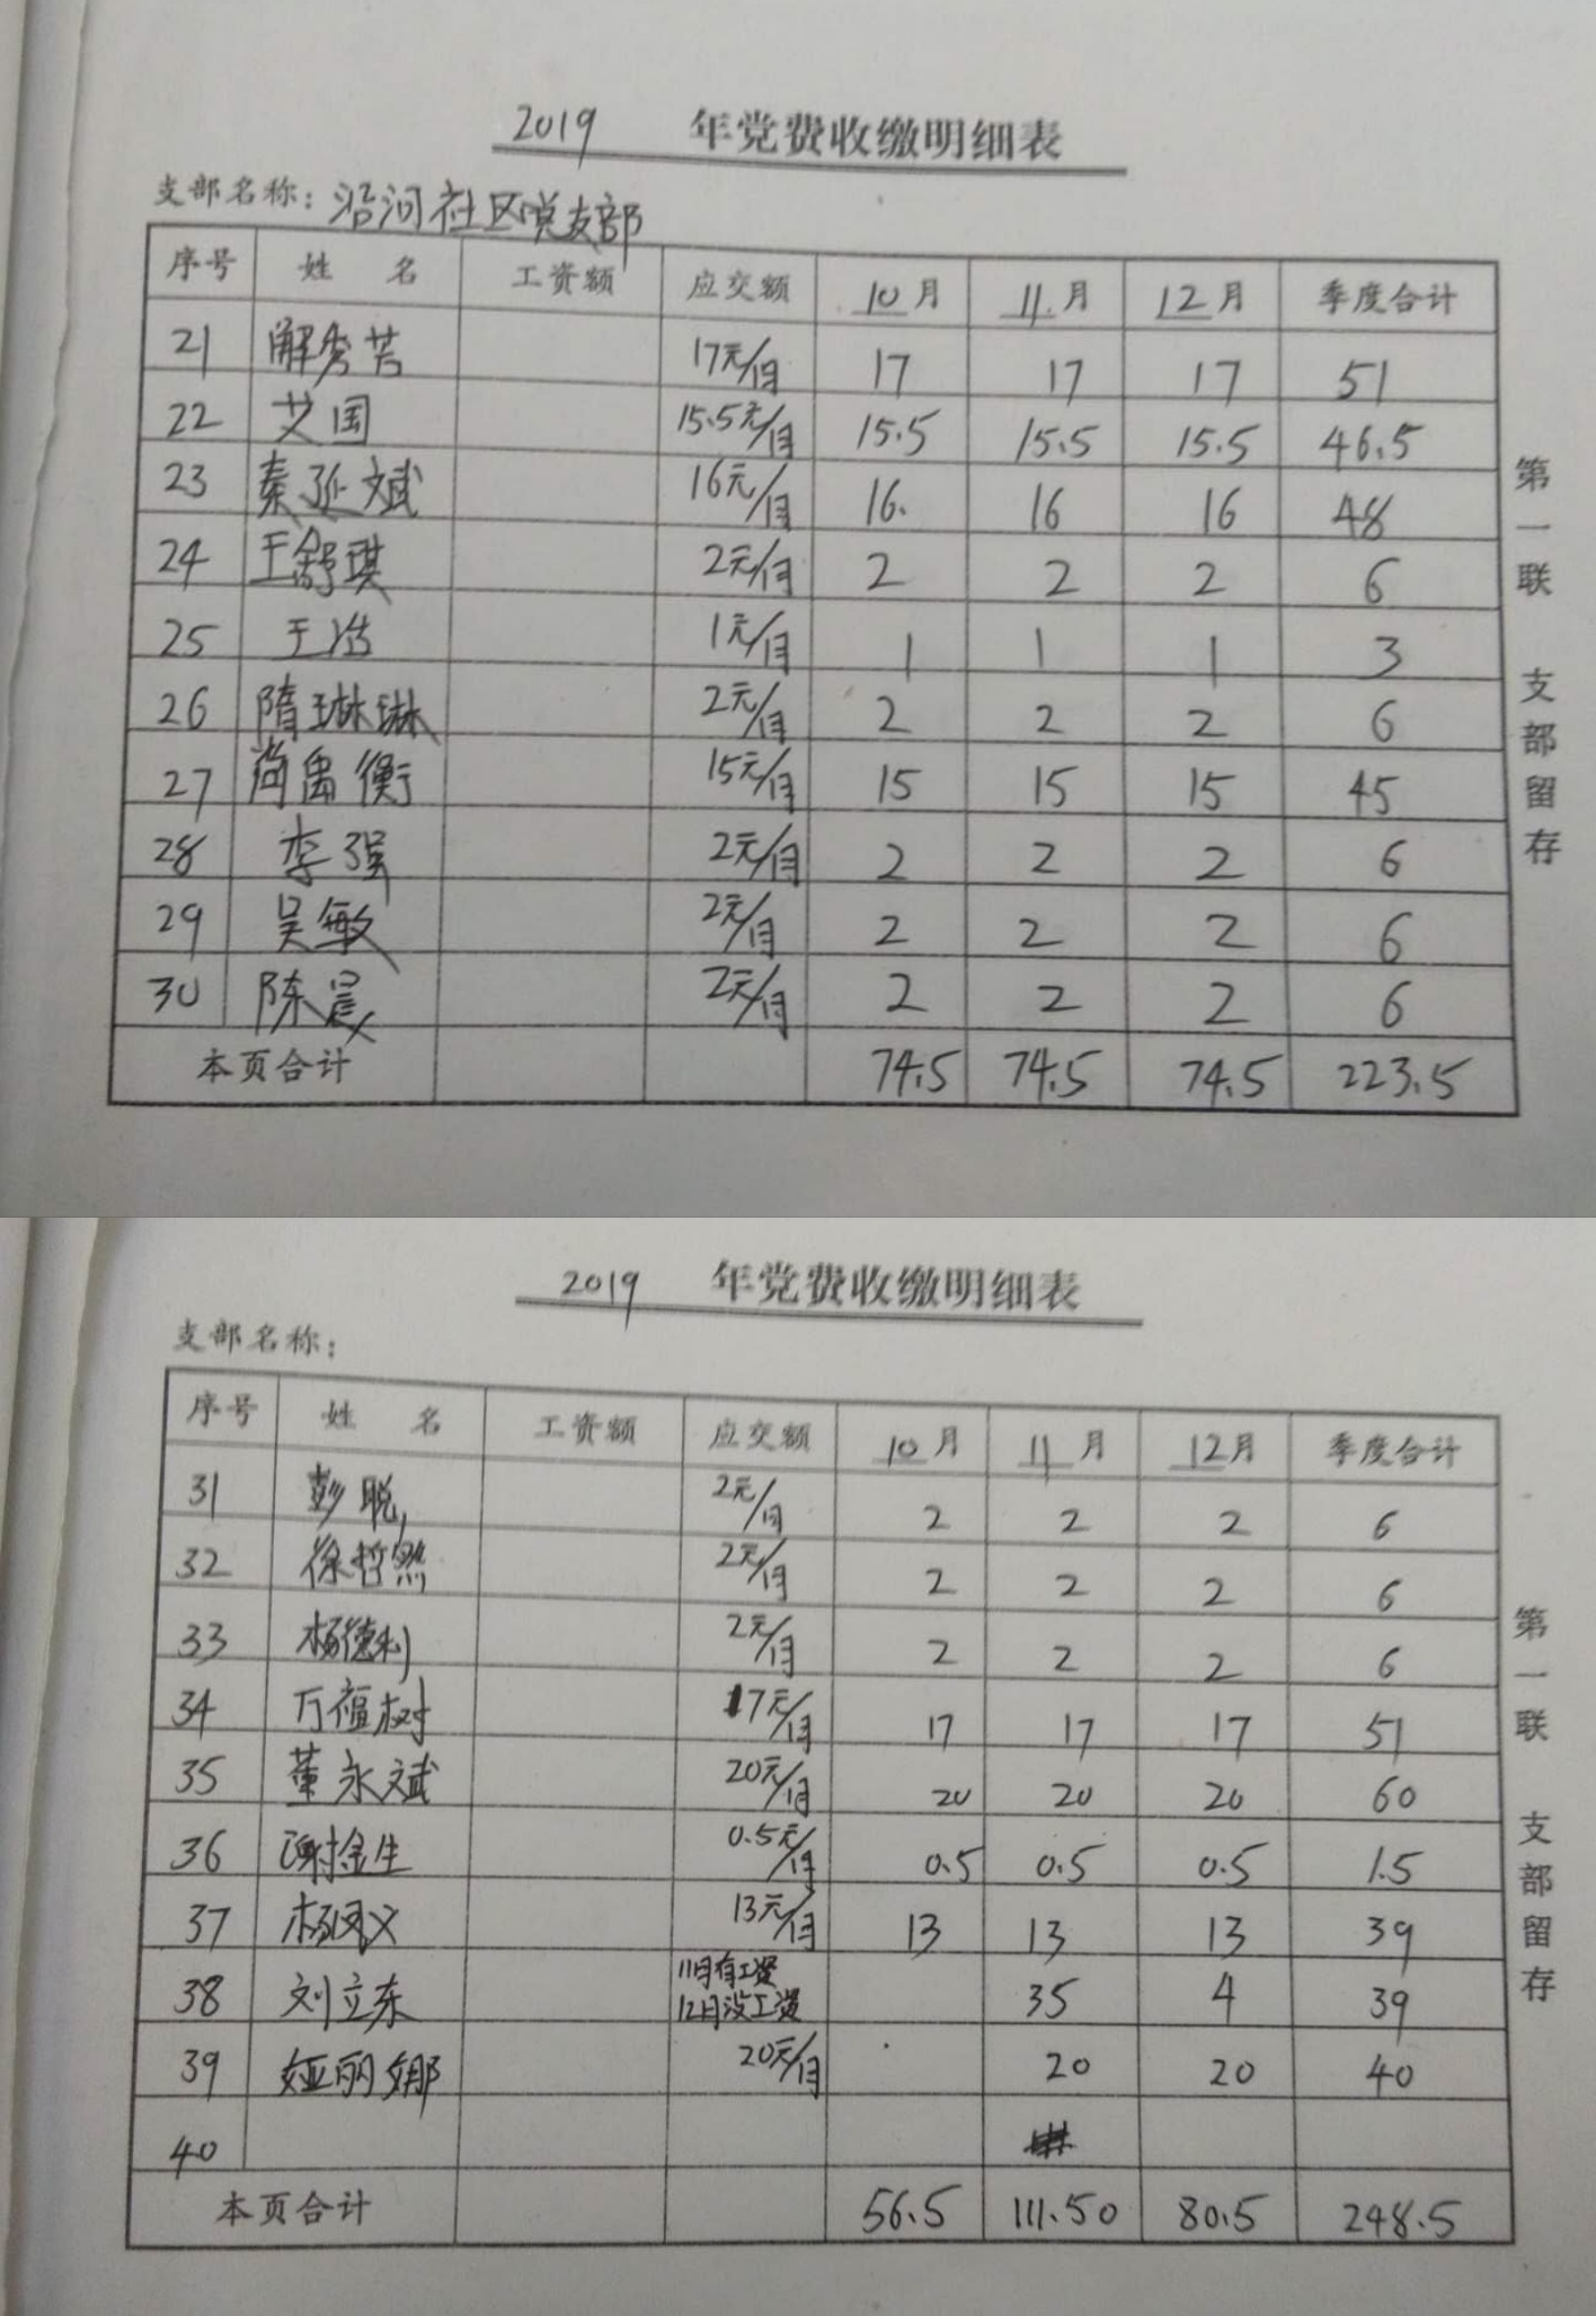 2019 年党费收缴明细表
支部名称：沿河社区党支部
序号 姓 名 工资额 应交额 10月 11月 12月 季度合计
21 解秀芳 17元/月 17 17 17 51
22 艾国 15.5元/月 15.5 15.5 15.5 46.5
23 秦延斌 16元/月 16. 16 16 48
24 王舒琪 2元/月 2 2 2 6
25 王浩 1元/月 1 1 1 3
26 隋琳琳 2元/月 2 2 2 6
27 尚禹衡 15元/月 15 15 15 45
28 李强 2元/月 2 2 2 6
29 吴敏 2元/月 2 2 2 6
30 陈晨 2元/月 2 2 2 6
本页合计 74.5 74.5 74.5 223.5
第一联 支部留存
2019 年党费收缴明细表
支部名称：
序号 姓 名 工资额 应交额 10月 11月 12月 季度合计
31 彭聪 2元/月 2 2 2 6
32 徐哲然 2元/月 2 2 2 6
33 杨德利 2元/月 2 2 2 6
34 万福树 17元/月 17 17 17 51
35 董永斌 20元/月 20 20 20 60
36 谢金生 0.5元/月 0.5 0.5 0.5 1.5
37 杨凤义 13元/月 13 13 13 39
38 刘立东 11月有工资 12月没工资 35 4 39
39 娅丽娜 20元/月 20 20 40
40
本页合计 56.5 111.50 80.5 248.5
第一联 支部留存